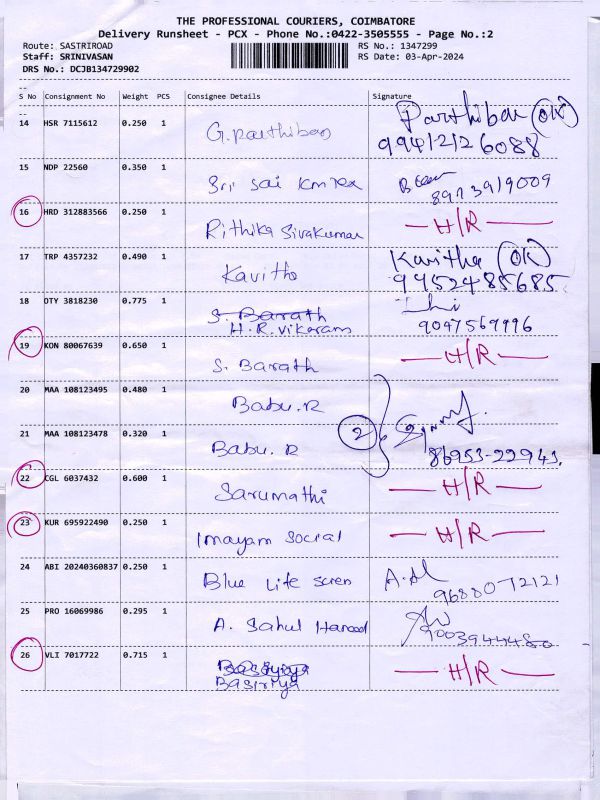 THE PROFESSIONAL COURIERS, COIMBATORE
Delivery Runsheet - PCX - Phone No.:0422-3505555 - Page No.:2
Route: SASTRIROAD
Staff: SRINIVASAN
DRS No.: DCJB134729902
RS No.: 1347299
RS Date: 03-Apr-2024
S No Consignment No Weight PCS Consignee Details Signature
14 HSR 7115612 0.250 1 G.parthiban Parthiban (OK)
15 NDP 22560 0.350 1 Sri Sai
8973919009
16 HRD 312883566 0.250 1 Rithika Sivakumar H/R
17 TRP 4357232 0.490 1 Kavitha Kavitha (OK)
9952485685
18 OTY 3818230 0.775 1 S. Barath
H.R. Vikaram
19 KON 80067639 0.650 1 S. Barath H/R
20 MAA 108123495 0.480 1 Babu.R
2
21 MAA 108123478 0.320 1 Babu.R
86953-22943.
22 CGL 6037432 0.600 1 Sarumathi H/R
23 KUR 695922490 0.250 1 Imayam Social H/R
24 ABI 20240360837 0.250 1 Blue Life
9688072121
25 PRO 16069986 0.295 1 A. Sahul Hameed
9003944480
26 VLI 7017722 0.715 1 Basiriya H/R